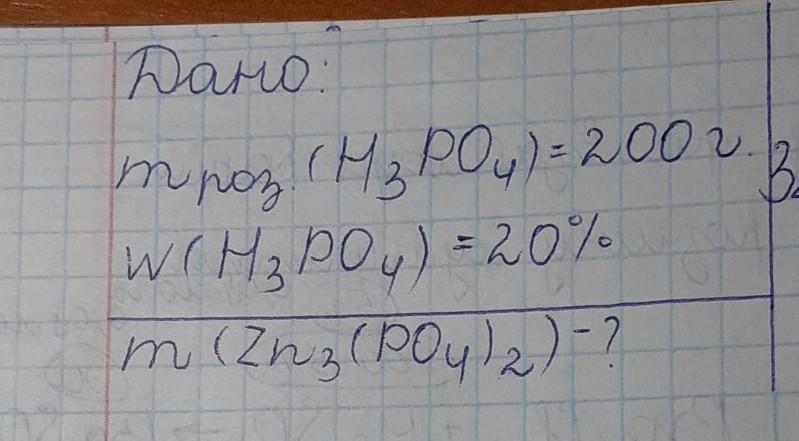 Дано:
m роз. (H₃PO₄) = 200 г.
w (H₃PO₄) = 20%
m (Zn₃(PO₄)₂) - ?